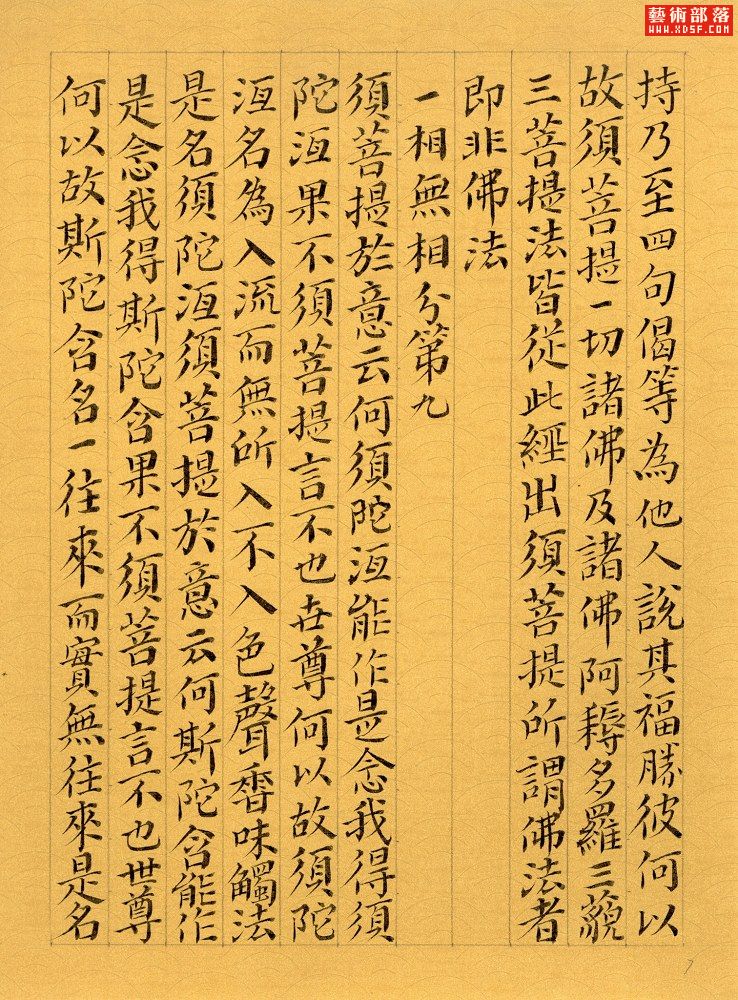 藝術部落
WWW.XDSF.COM
持乃至四句偈等為他人說其福勝彼何以
故須菩提一切諸佛及諸佛阿耨多羅三藐
三菩提法皆從此經出須菩提所謂佛法者
即非佛法
一相無相分第九
須菩提於意云何須陀洹能作是念我得須
陀洹果不須菩提言不也世尊何以故須陀
洹名為入流而無所入不入色聲香味觸法
是名須陀洹須菩提於意云何斯陀含能作
是念我得斯陀含果不須菩提言不也世尊
何以故斯陀含名一往來而實無往來是名
7